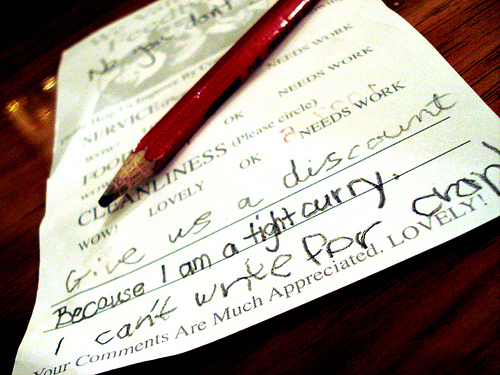 No you don't
SERVICE
WOW! OK NEEDS WORK
FOOD
WOW! OK NEEDS WORK
CLEANLINESS (Please circle)
WOW! LOVELY OK NEEDS WORK
Give us a discount
Because I am a tight curry.
I can't write for crap
Your Comments Are Much Appreciated. LOVELY!